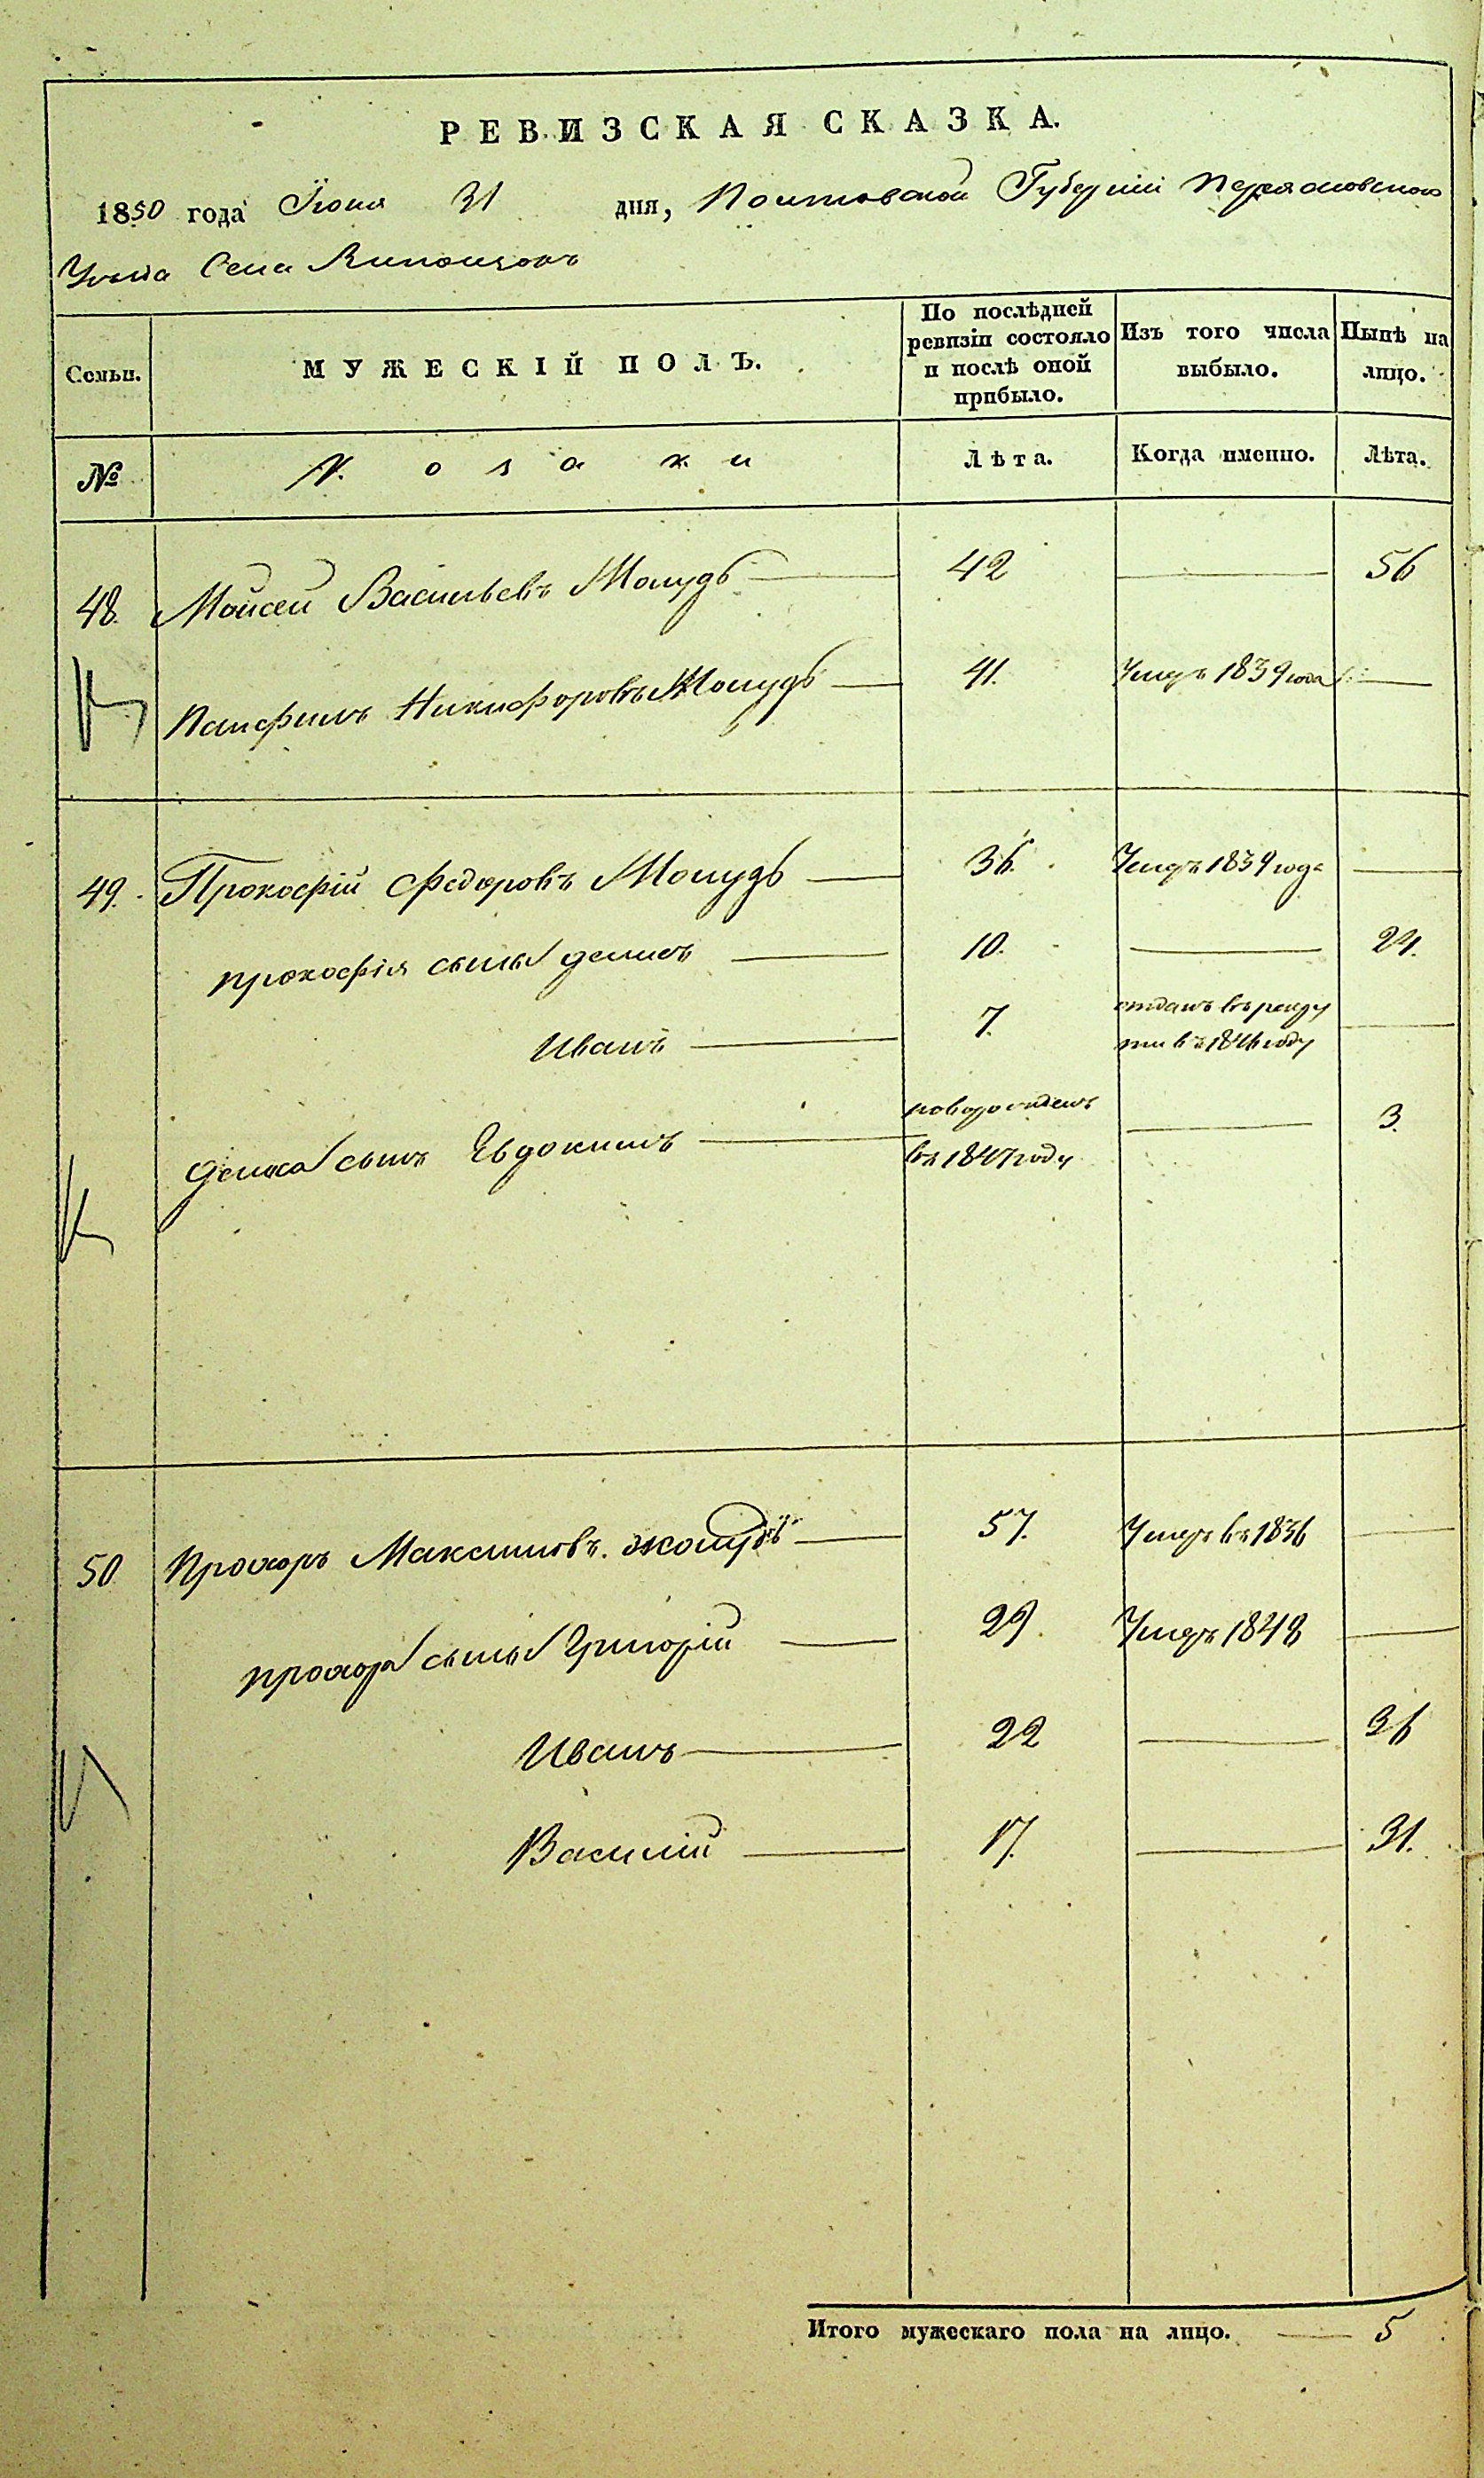 РЕВИЗСКАЯ СКАЗКА.
1850 года Іюня 31 дня, Полтавской Губерніи Переяславского
Уѣзда Села
Семьи.
МУЖЕСКІЙ ПОЛЪ.
По послѣдней ревизіи состояло и послѣ оной прибыло.
Изъ того числа выбыло.
Нынѣ на лицо.
№ Козаки Лѣта. Когда именно. Лѣта.
48. Мойсей Васильевъ 42 56
Панфилъ Никифоровъ 41. Умеръ 1839 года
49. Прокофій Федоровъ 36. Умеръ 1839 года
Прокофія сынъ Денисъ 10. 24.
Иванъ 7. отданъ въ рекру
ти въ 1846 году
Дениса сынъ Евдокимъ новорожденъ 3.
въ 1847 году
50 Прохоръ Максимовъ. 57. Умеръ въ 1836
Прохора сынъ Григорій 29. Умеръ 1848
Иванъ 22 36
Василій 17. 31.
Итого мужескаго пола на лицо. 5